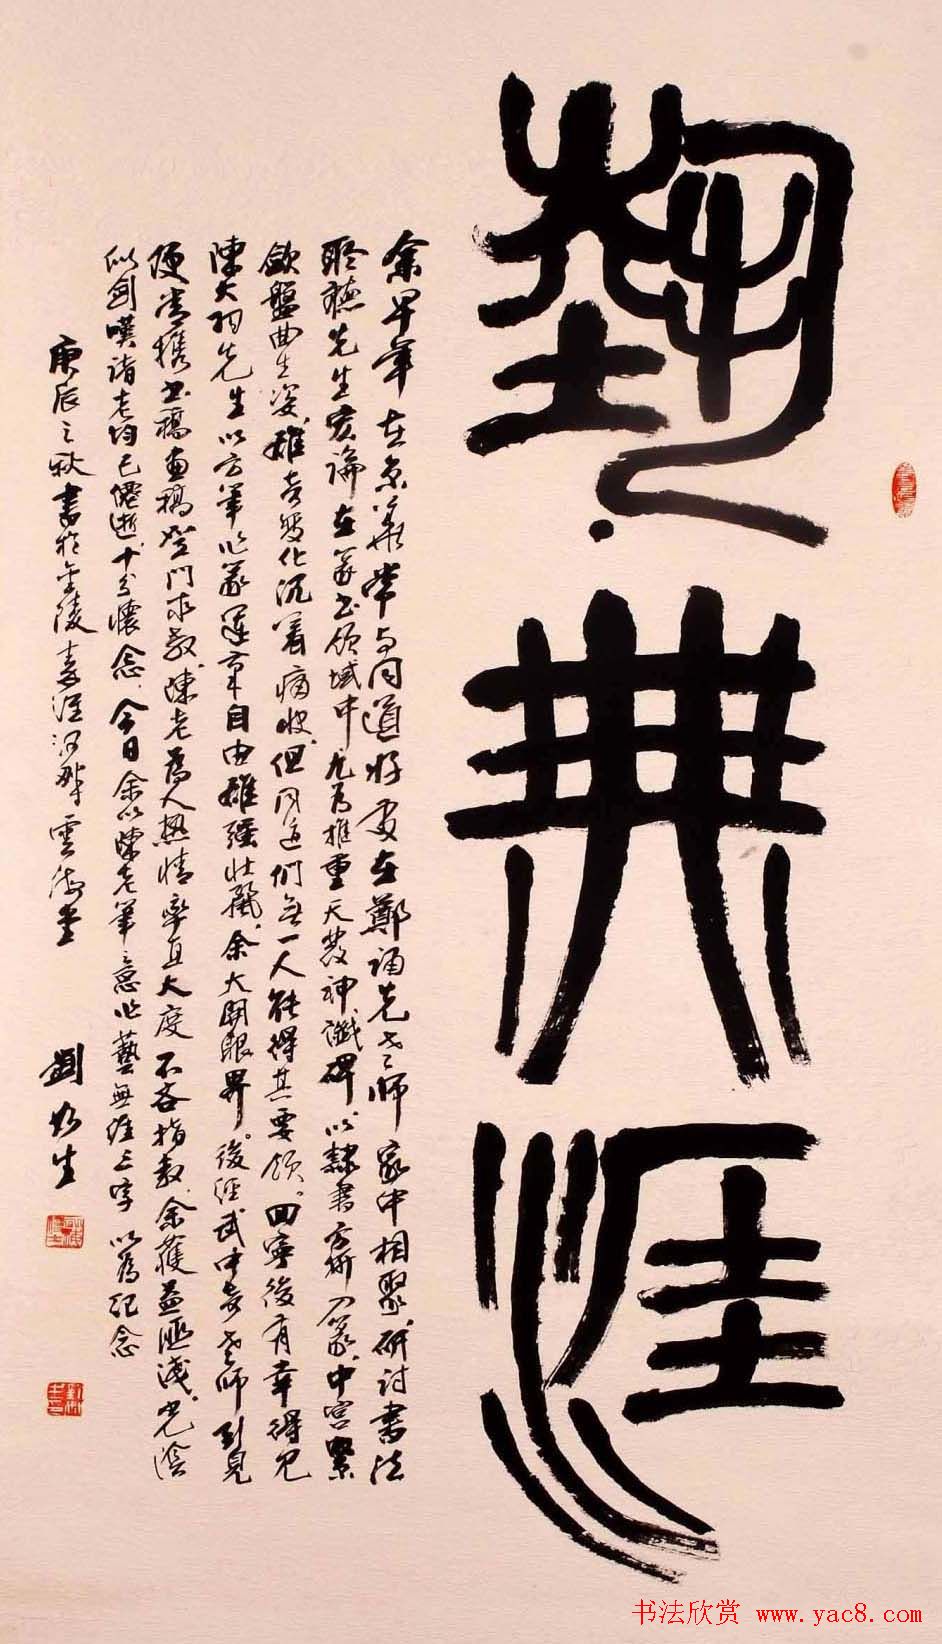 藝無涯
余早年在京華常与同道好友在鄭誦先老師家中相聚研討書法
聆聽先生宏論在篆书领域中尤為推重天發神讖碑以隸書方折入篆中宮緊
歛盤曲生姿雄奇变化沉着痛快但同道们無一人能得其要领回寧後有幸得見
陳大羽先生以方筆作篆運筆自由雄强壮麗余大開眼界後經武中奇老師引見
便常携书稿画稿登門求教陳老為人热情率直大度不吝指教余獲益匪淺光陰
似剑嘆諸老均已僊逝十分懷念今日余以陳老筆意作藝無涯三字以為纪念
庚辰之秋書於金陵秦淮河畔雲海堂 劉 生
书法欣赏 www.yac8.com